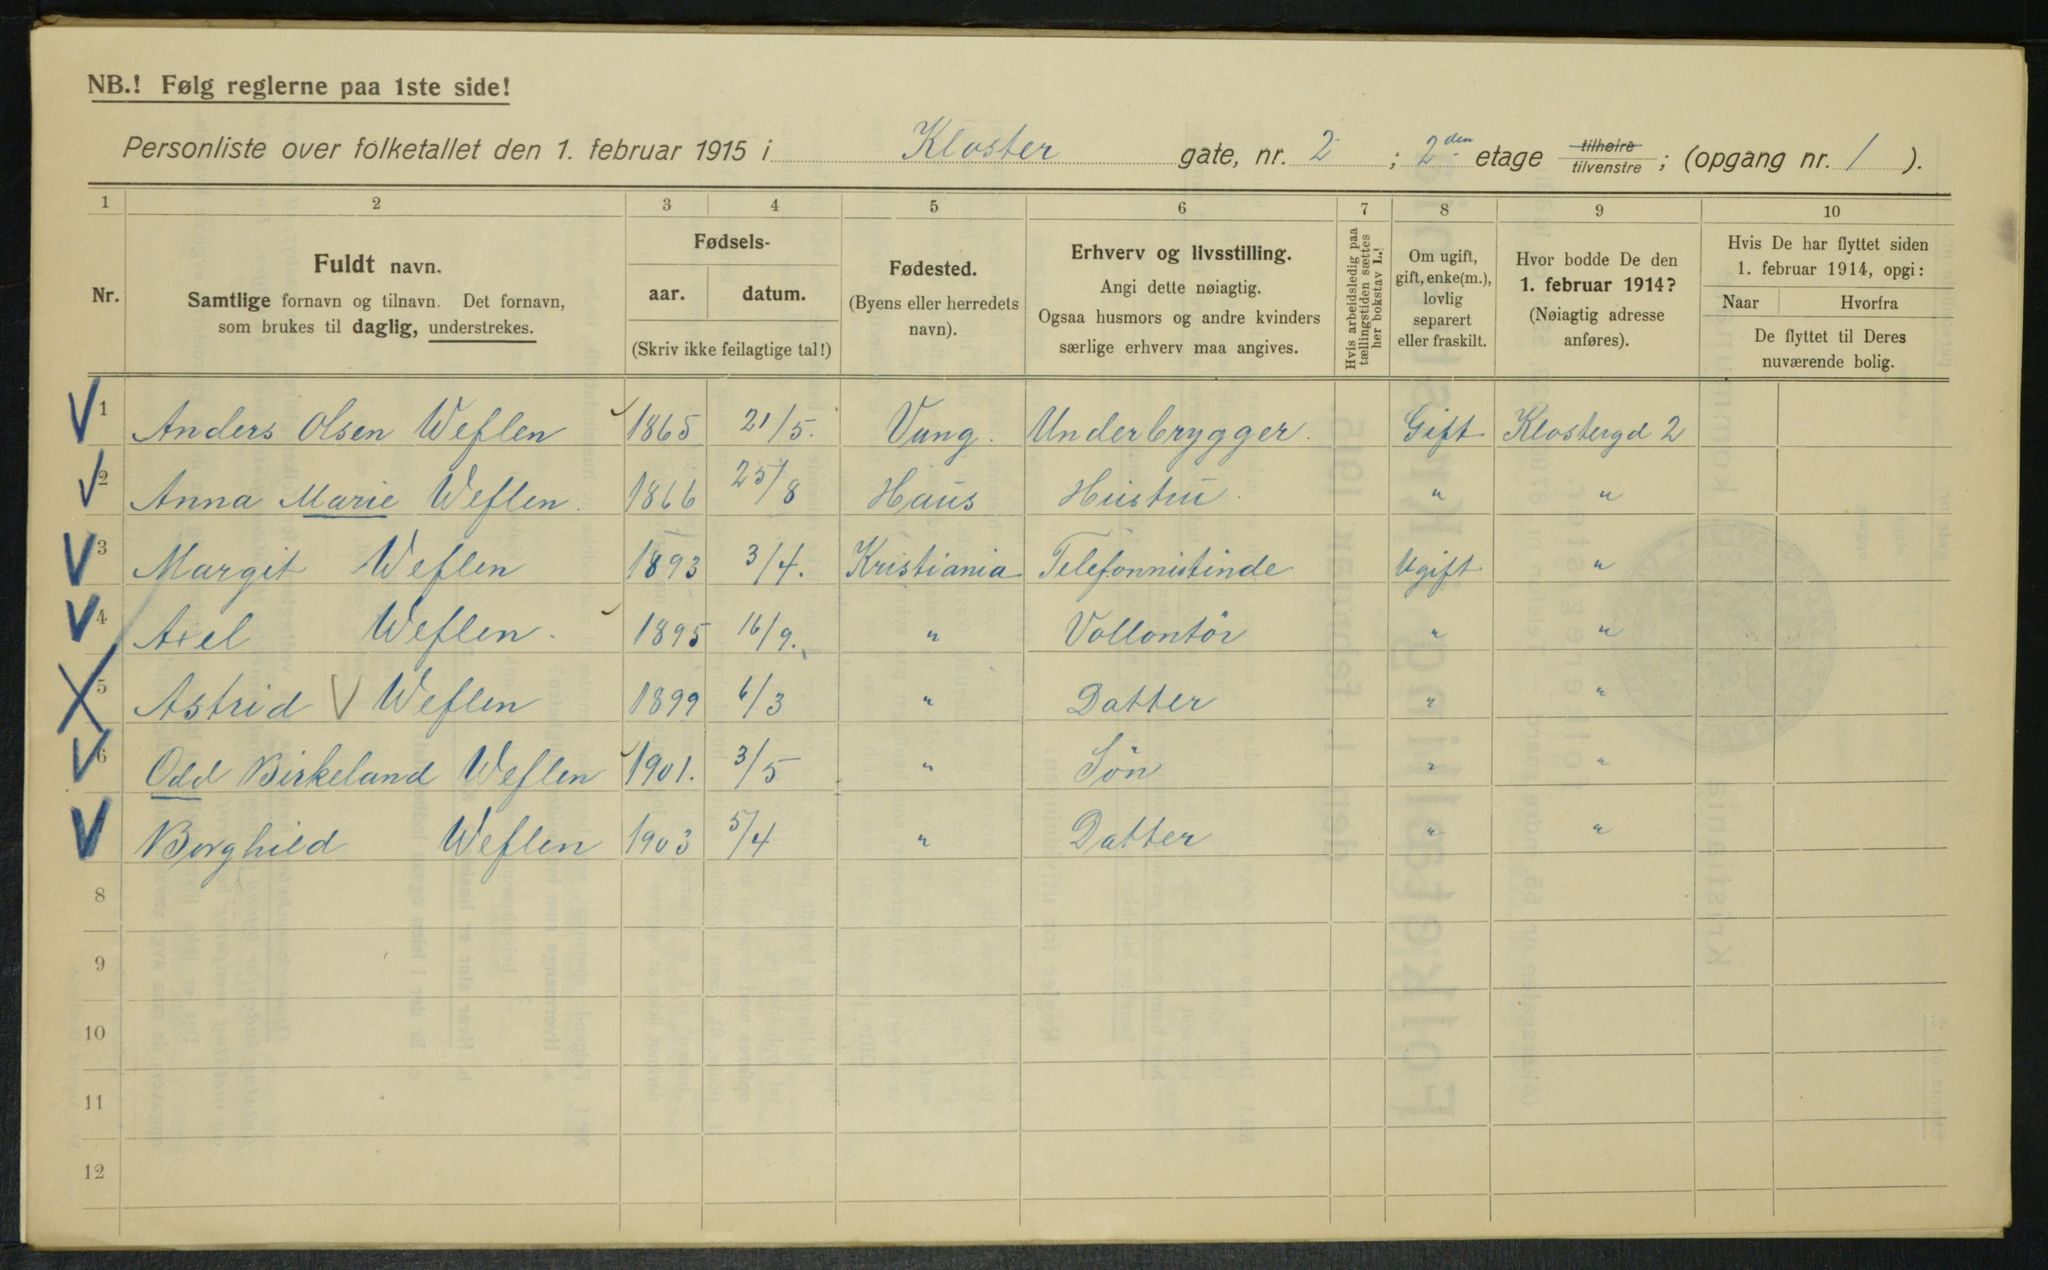 NB.! Følg reglerne paa 1ste side!
Personliste over folketallet den 1. februar 1915 i Kloster gate, nr. 2 ; 2den etage tilhøire/tilvenstre ; (opgang nr. 1 ).
1 2 3 4 5 6 7 8 9 10
Nr.
Fuldt navn.
Samtlige fornavn og tilnavn. Det fornavn,
som brukes til daglig, understrekes.
Fødsels-
aar. datum.
(Skriv ikke feilagtige tal!)
Fødested.
(Byens eller herredets
navn).
Erhverv og livsstilling.
Angi dette nøiagtig.
Ogsaa husmors og andre kvinders
særlige erhverv maa angives.
Hvis arbeidsledig paa
tællingstiden sættes
her bokstav L.!
Om ugift,
gift, enke(m.),
lovlig
separert
eller fraskilt.
Hvor bodde De den
1. februar 1914?
(Nøiagtig adresse
anføres).
Hvis De har flyttet siden
1. februar 1914, opgi:
Naar Hvorfra
De flyttet til Deres
nuværende bolig.
1 Anders Olsen Weflen 1865 21/5. Vang. Underbrygger. Gift Klostergd 2
2 Anna Marie Weflen. 1866 25/8 Haus Hustru. " "
3 Margit Weflen 1893 3/4. Kristiania Telefonnistinde Ugift "
4 Axel Weflen. 1895 16/9. " Vollontör " "
5 Astrid Weflen 1899 6/3 " Datter " "
6 Odd Birkeland Weflen 1901. 3/5 " Sön " "
Borghild Weflen 1903 5/4 " Datter " "
8
9
10
11
12